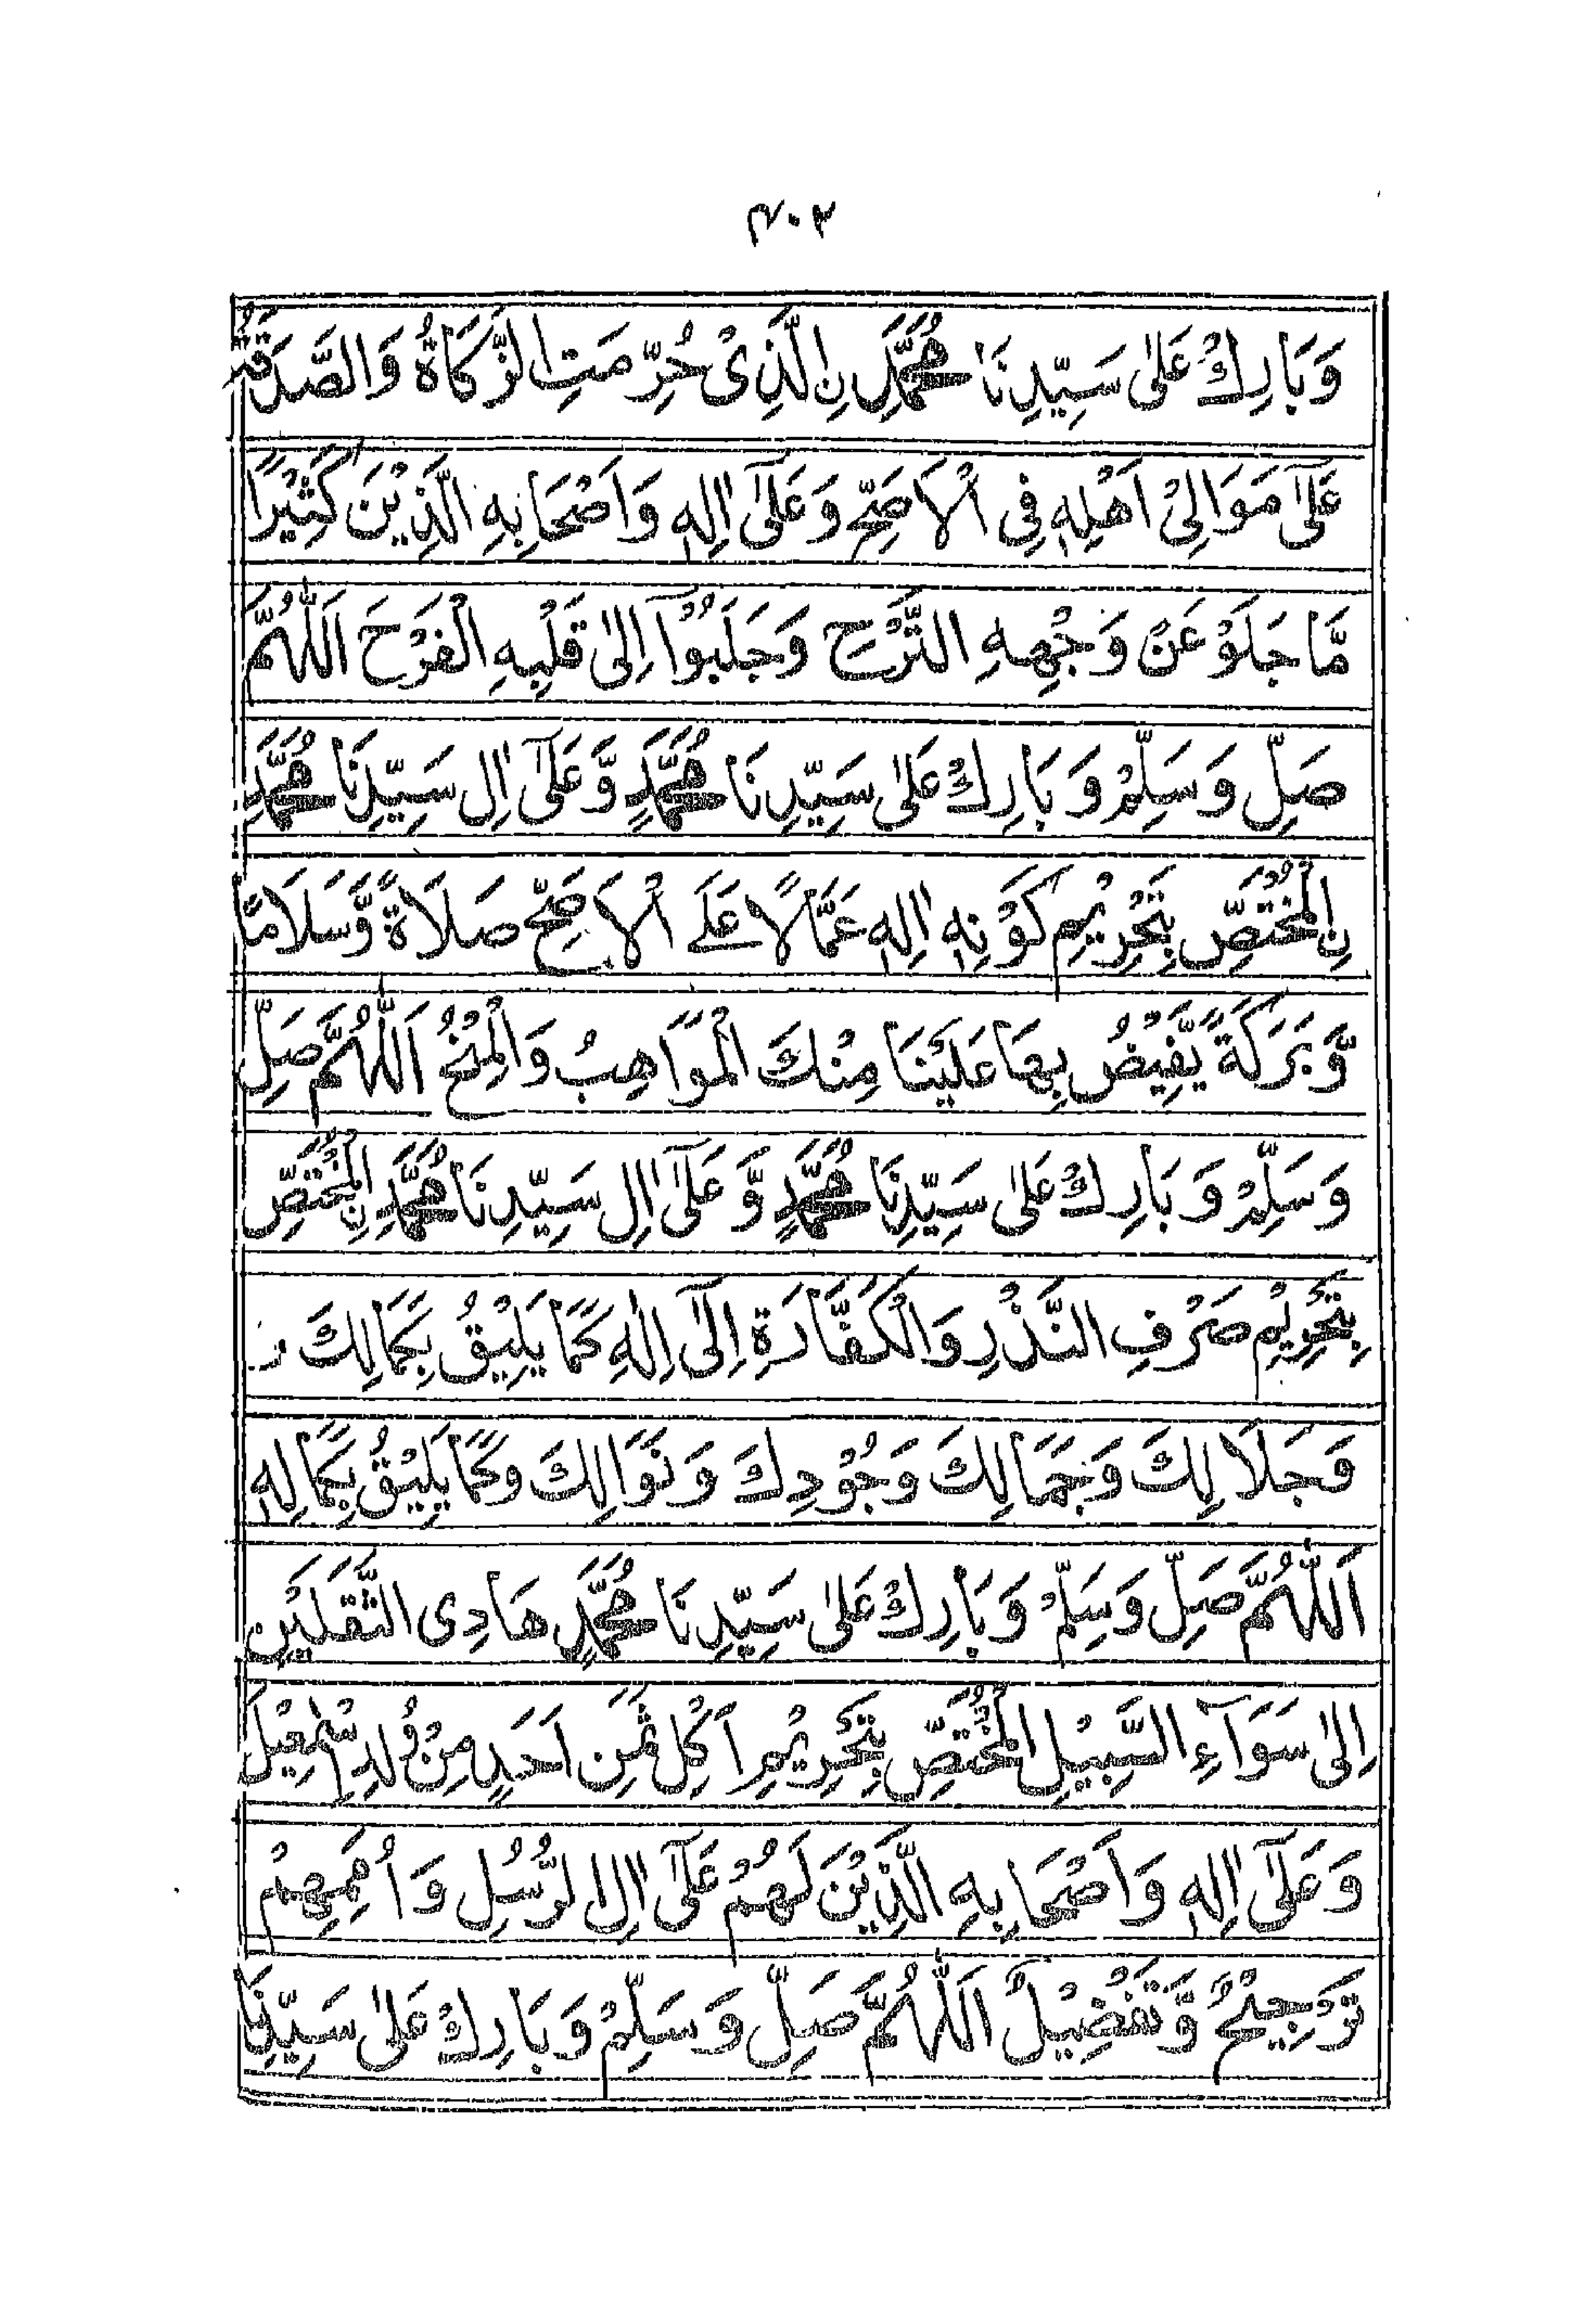 ٣٠٢
وَبَارِكْ عَلٰى سَيِّدِنَا مُحَمَّدِ نِ الَّذِىْ حُرِّمَتِ الزَّكَاةُ وَالصَّدَقَةُ
عَلٰٓى مَوَالِىْ اَهْلِهٖ فِى الْاَصَحِّ وَعَلٰٓى اٰلِهٖ وَاَصْحَابِهِ الَّذِيْنَ كَثِيْرًا
مَّا جَلَوْ عَنْ وَجْهِهِ التَّرْحَ وَجَلَبُوْٓا اِلٰى قَلْبِهِ الْفَرْحَ اَللّٰهُمَّ
صَلِّ وَسَلِّمْ وَبَارِكْ عَلٰى سَيِّدِنَا مُحَمَّدٍ وَّعَلٰٓى اٰلِ سَيِّدِنَا مُحَمَّدِ
نِ الْمُخْتَصِّ بِتَحْرِيْمِ كَوْنِهٖ اٰلِهٖ عَمَّالًا عَلَى الْاَصَحِّ صَلَاةً وَّسَلَامًا
وَّبَرَكَةً يَّفِيْضُ بِهَا عَلَيْنَا مِنْكَ الْمَوَاهِبُ وَالْمِنَحُ اَللّٰهُمَّ صَلِّ
وَسَلِّمْ وَبَارِكْ عَلٰى سَيِّدِنَا مُحَمَّدٍ وَّعَلٰٓى اٰلِ سَيِّدِنَا مُحَمَّدِ نِ الْمُخْتَصِّ
بِتَحْرِيْمِ صَرْفِ النَّذْرِ وَالْكَفَّارَةِ اِلٰٓى اٰلِهٖ كَمَا يَلِيْقُ بِكَمَالِكَ
وَجَلَالِكَ وَجَمَالِكَ وَجُوْدِكَ وَنَوَالِكَ وَكَمَا يَلِيْقُ بِكَمَالِهٖ
اَللّٰهُمَّ صَلِّ وَسَلِّمْ وَبَارِكْ عَلٰى سَيِّدِنَا مُحَمَّدٍ هَادِى الثَّقَلَيْنِ
اِلٰى سَوَآءِ السَّبِيْلِ الْمُخْتَصِّ بِتَحْرِيْمِ اَكْلِ ثَمَنِ اَحَدٍ مِنْ وُلْدِ اِسْمٰعِيْلَ
وَعَلٰٓى اٰلِهٖ وَاَصْحَابِهِ الَّذِيْنَ لَهُمْ عَلٰٓى اٰلِ الرُّسُلِ وَاُمَمِهِمْ
تَرْجِيْحٌ وَّتَفْضِيْلٌ اَللّٰهُمَّ صَلِّ وَسَلِّمْ وَبَارِكْ عَلٰى سَيِّدِنَا